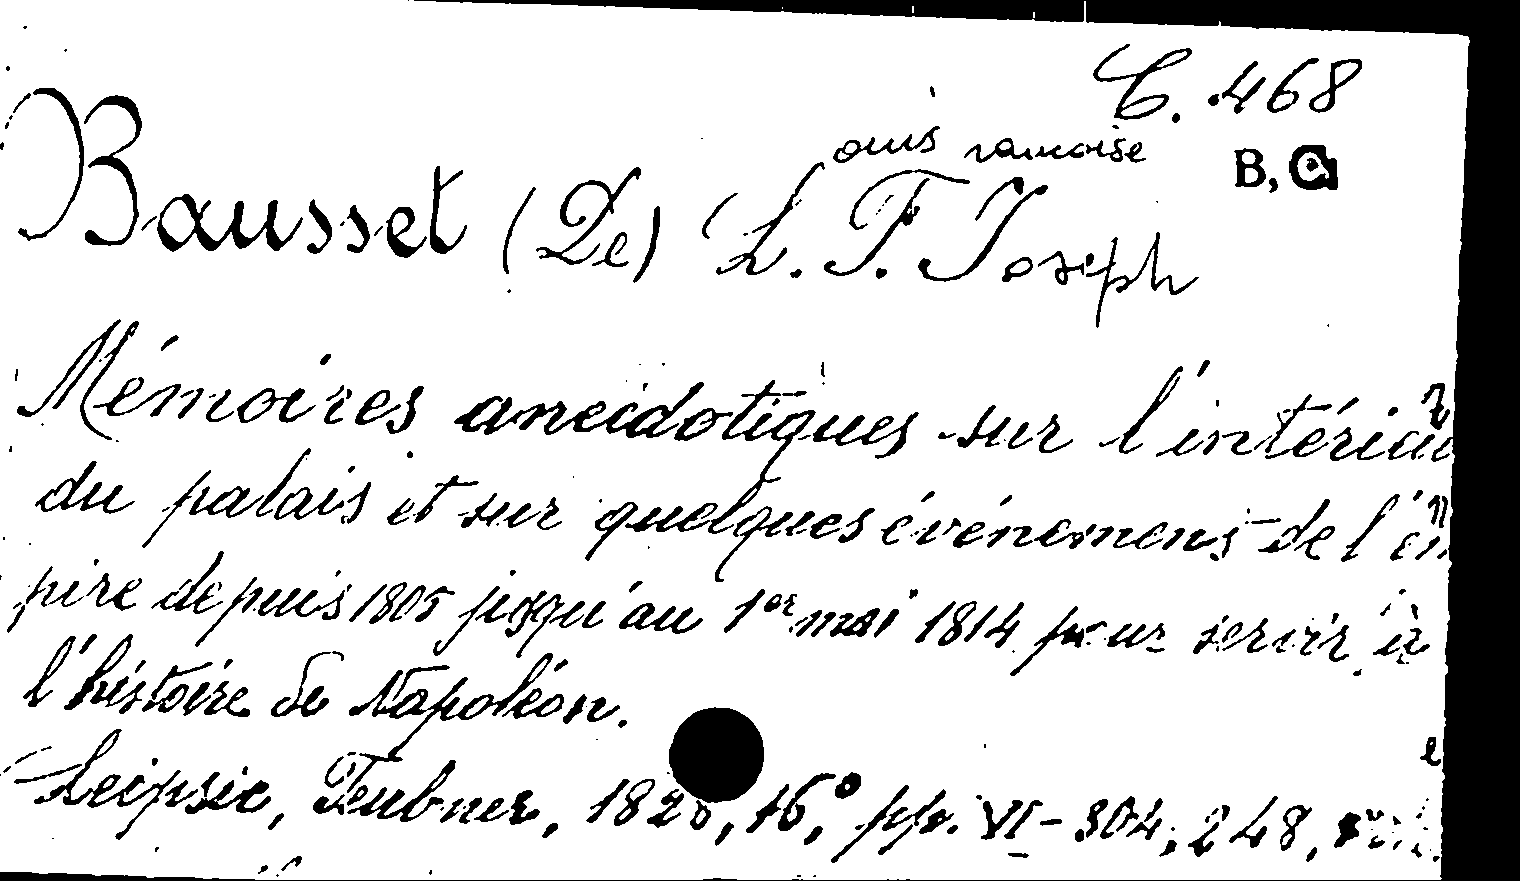 C. 468
ouis rançoise B, G
Bausset (De) L. F. Joseph
Mémoires anecdotiques sur l'intérieur
du palais et sur quelques événemens de l'em
pire depuis 1805 jusqu'au 1er mai 1814 pour servir à
l'histoire de Napoléon.
Leipsic, Teubner, 1828, 16,° pp. VI-304, 248,